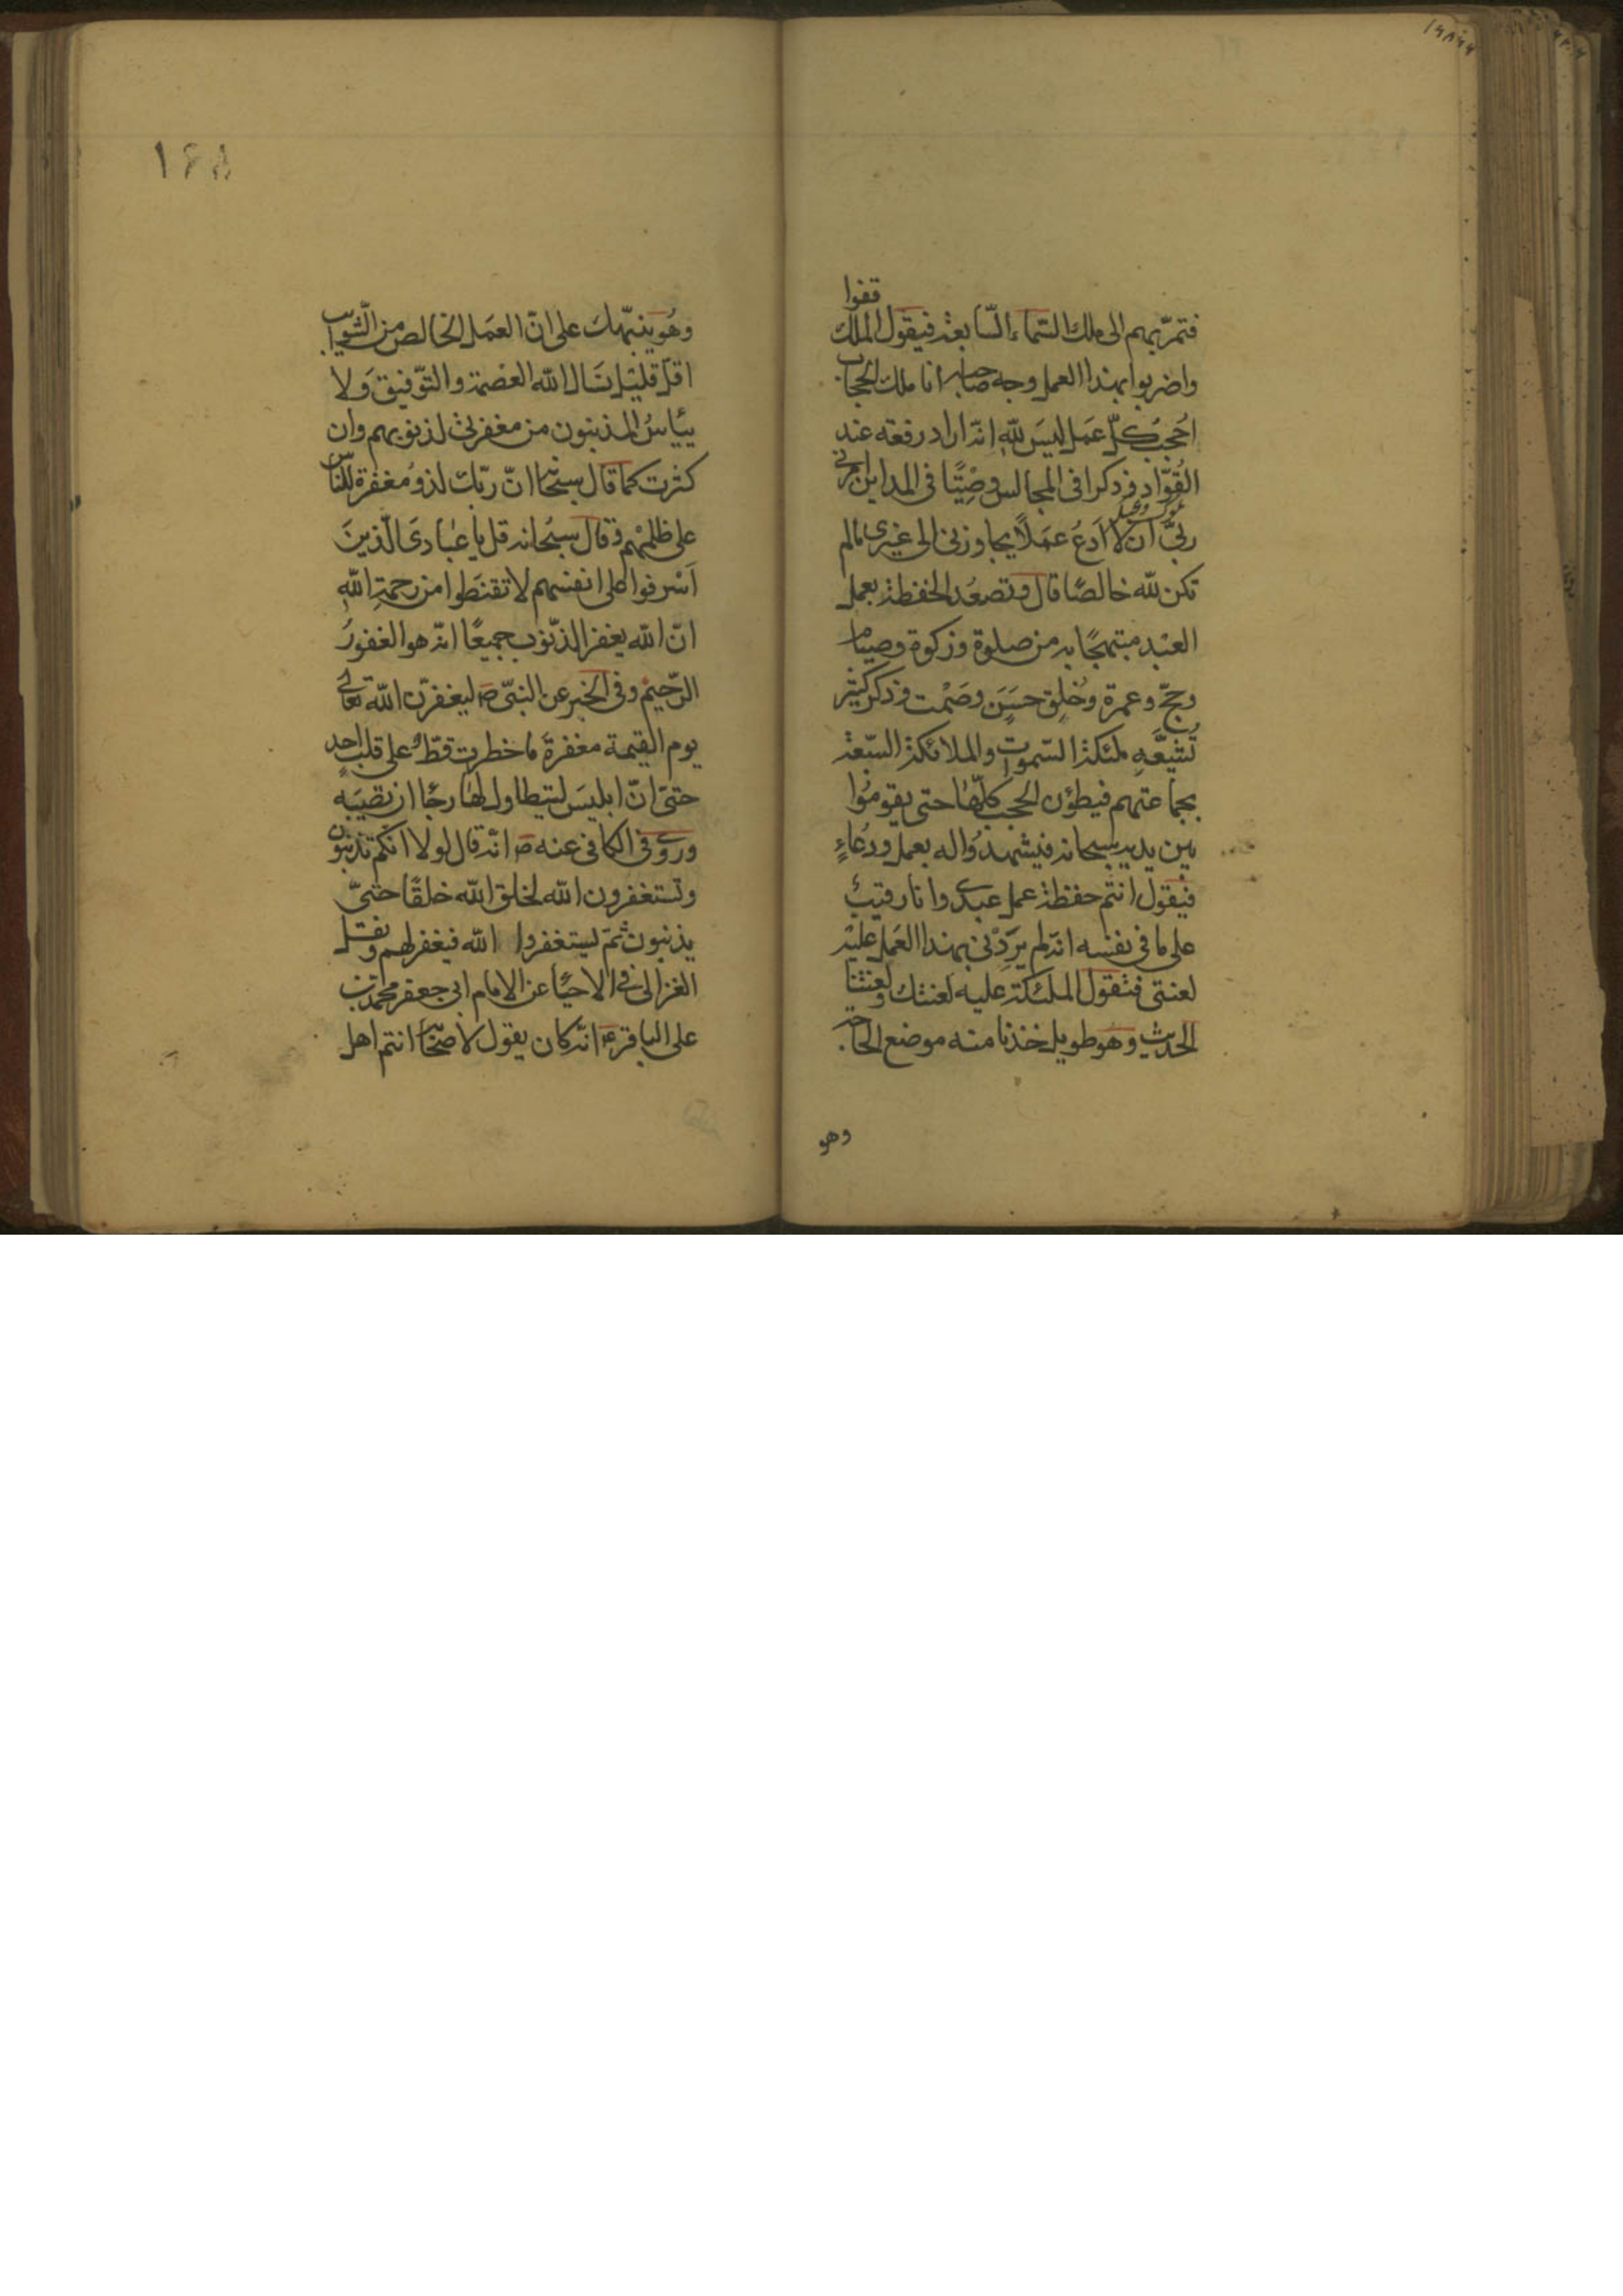 فتمرّ بهم الى ملك السّماء السّابعة فيقول الملك قفوا
واضربوا بهذا العمل وجه صاحبه انا ملك الحجاب
احجبُ كلّ عمَل ليسَ للّهِ انّه اراد رفعة عند
القُوّاد و ذكرا فى المجالس وصِيْتًا فى المداين امرنى
ربّى ان لا اَدَعَ عمَلًا يجاوزنى الى غيرى مالم
تكن للّه خالصًا قال وتصعُد الحفظة بعمل
العبْد مبتهجًا به من صلوة و زكوة و صيام
وحجّ وعمرة وخُلق حسَن وصَمْت و ذكر كثير
تُشيّعُه ملئكة السّموات والملائكة السّبعة
بجماعتهم فيطؤن الحجب كلّها حتى يقومُوا
بين يديه سبحانه فيشهدُوا له بعمل ودُعاءٍ
فيقول انتم حفظة عمل عبدى وانا رقيبٌ
على ما فى نفسه انه لم يرِدْنى بهذا العمَل عليْه
لعنتى فتقول الملئكة عليه لعنتك ولعنتنا
الحديث وهو طويل اخذنا منه موضع الحاجة
وهو
۱۶۸
وهُو ينبّهك على انّ العمَل الخالص من الشّوايب
اقلّ قليل نسَال اللّه العصمة والتّوفيق وَلا
ييأسُ المذنبون من مغفرتى لذنوبهم وان
كثرت كما قال سبحانه انّ ربّك لذُو مغفرة للنّاس
على ظلمهم و قال سبْحانه قل يا عبادىَ الّذينَ
اَسْرفوا على انفسهم لا تقنطوا من رحمةِ اللّهِ
انّ اللّه يغفر الذّنوب جميعًا انه هو الغفورُ
الرّحيم و فى الخبر عن النبىّ ص ليغفرنّ اللّه تعالى
يوم القيمة مغفرةً ما خطرت قطّ على قلب احدٍ
حتىّ انّ ابليسَ ليتطاول لها رجًا ان تصيبَه
ورُوى فى الكافى عنه ص انّه قال لولا انّكم تذنبون
وتستغفرون اللّه لخلق اللّه خلقًا حتىّ
يذنبون ثمّ ليستغفروا اللّه فيغفر لهم ونقل
الغزالى فى الاحيًا عن الامام ابى جعفر محمد بن
على الباقر ع انّه كان يقول لاصحابه انتم اهل